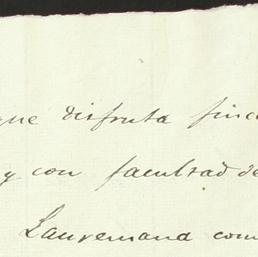 que disfruta finca
y con facultad de
Laureneana com